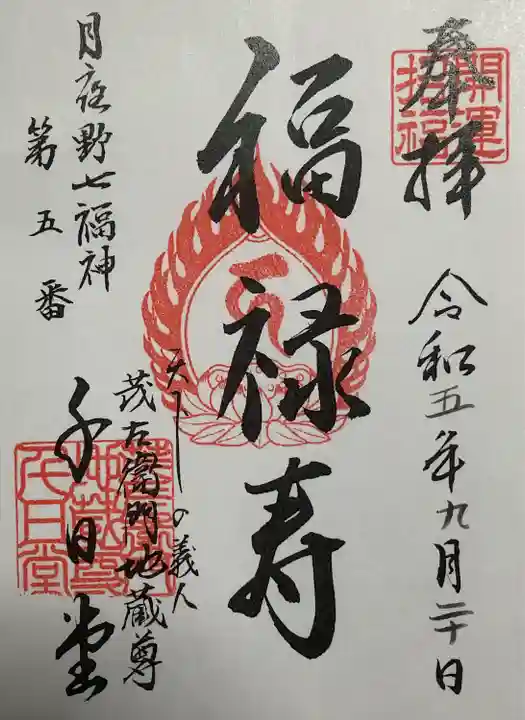 奉拝
開運
招福
令和五年九月二十日
福禄寿
天下の義人
茂左衛門地蔵尊
千日堂
月夜野七福神
第五番